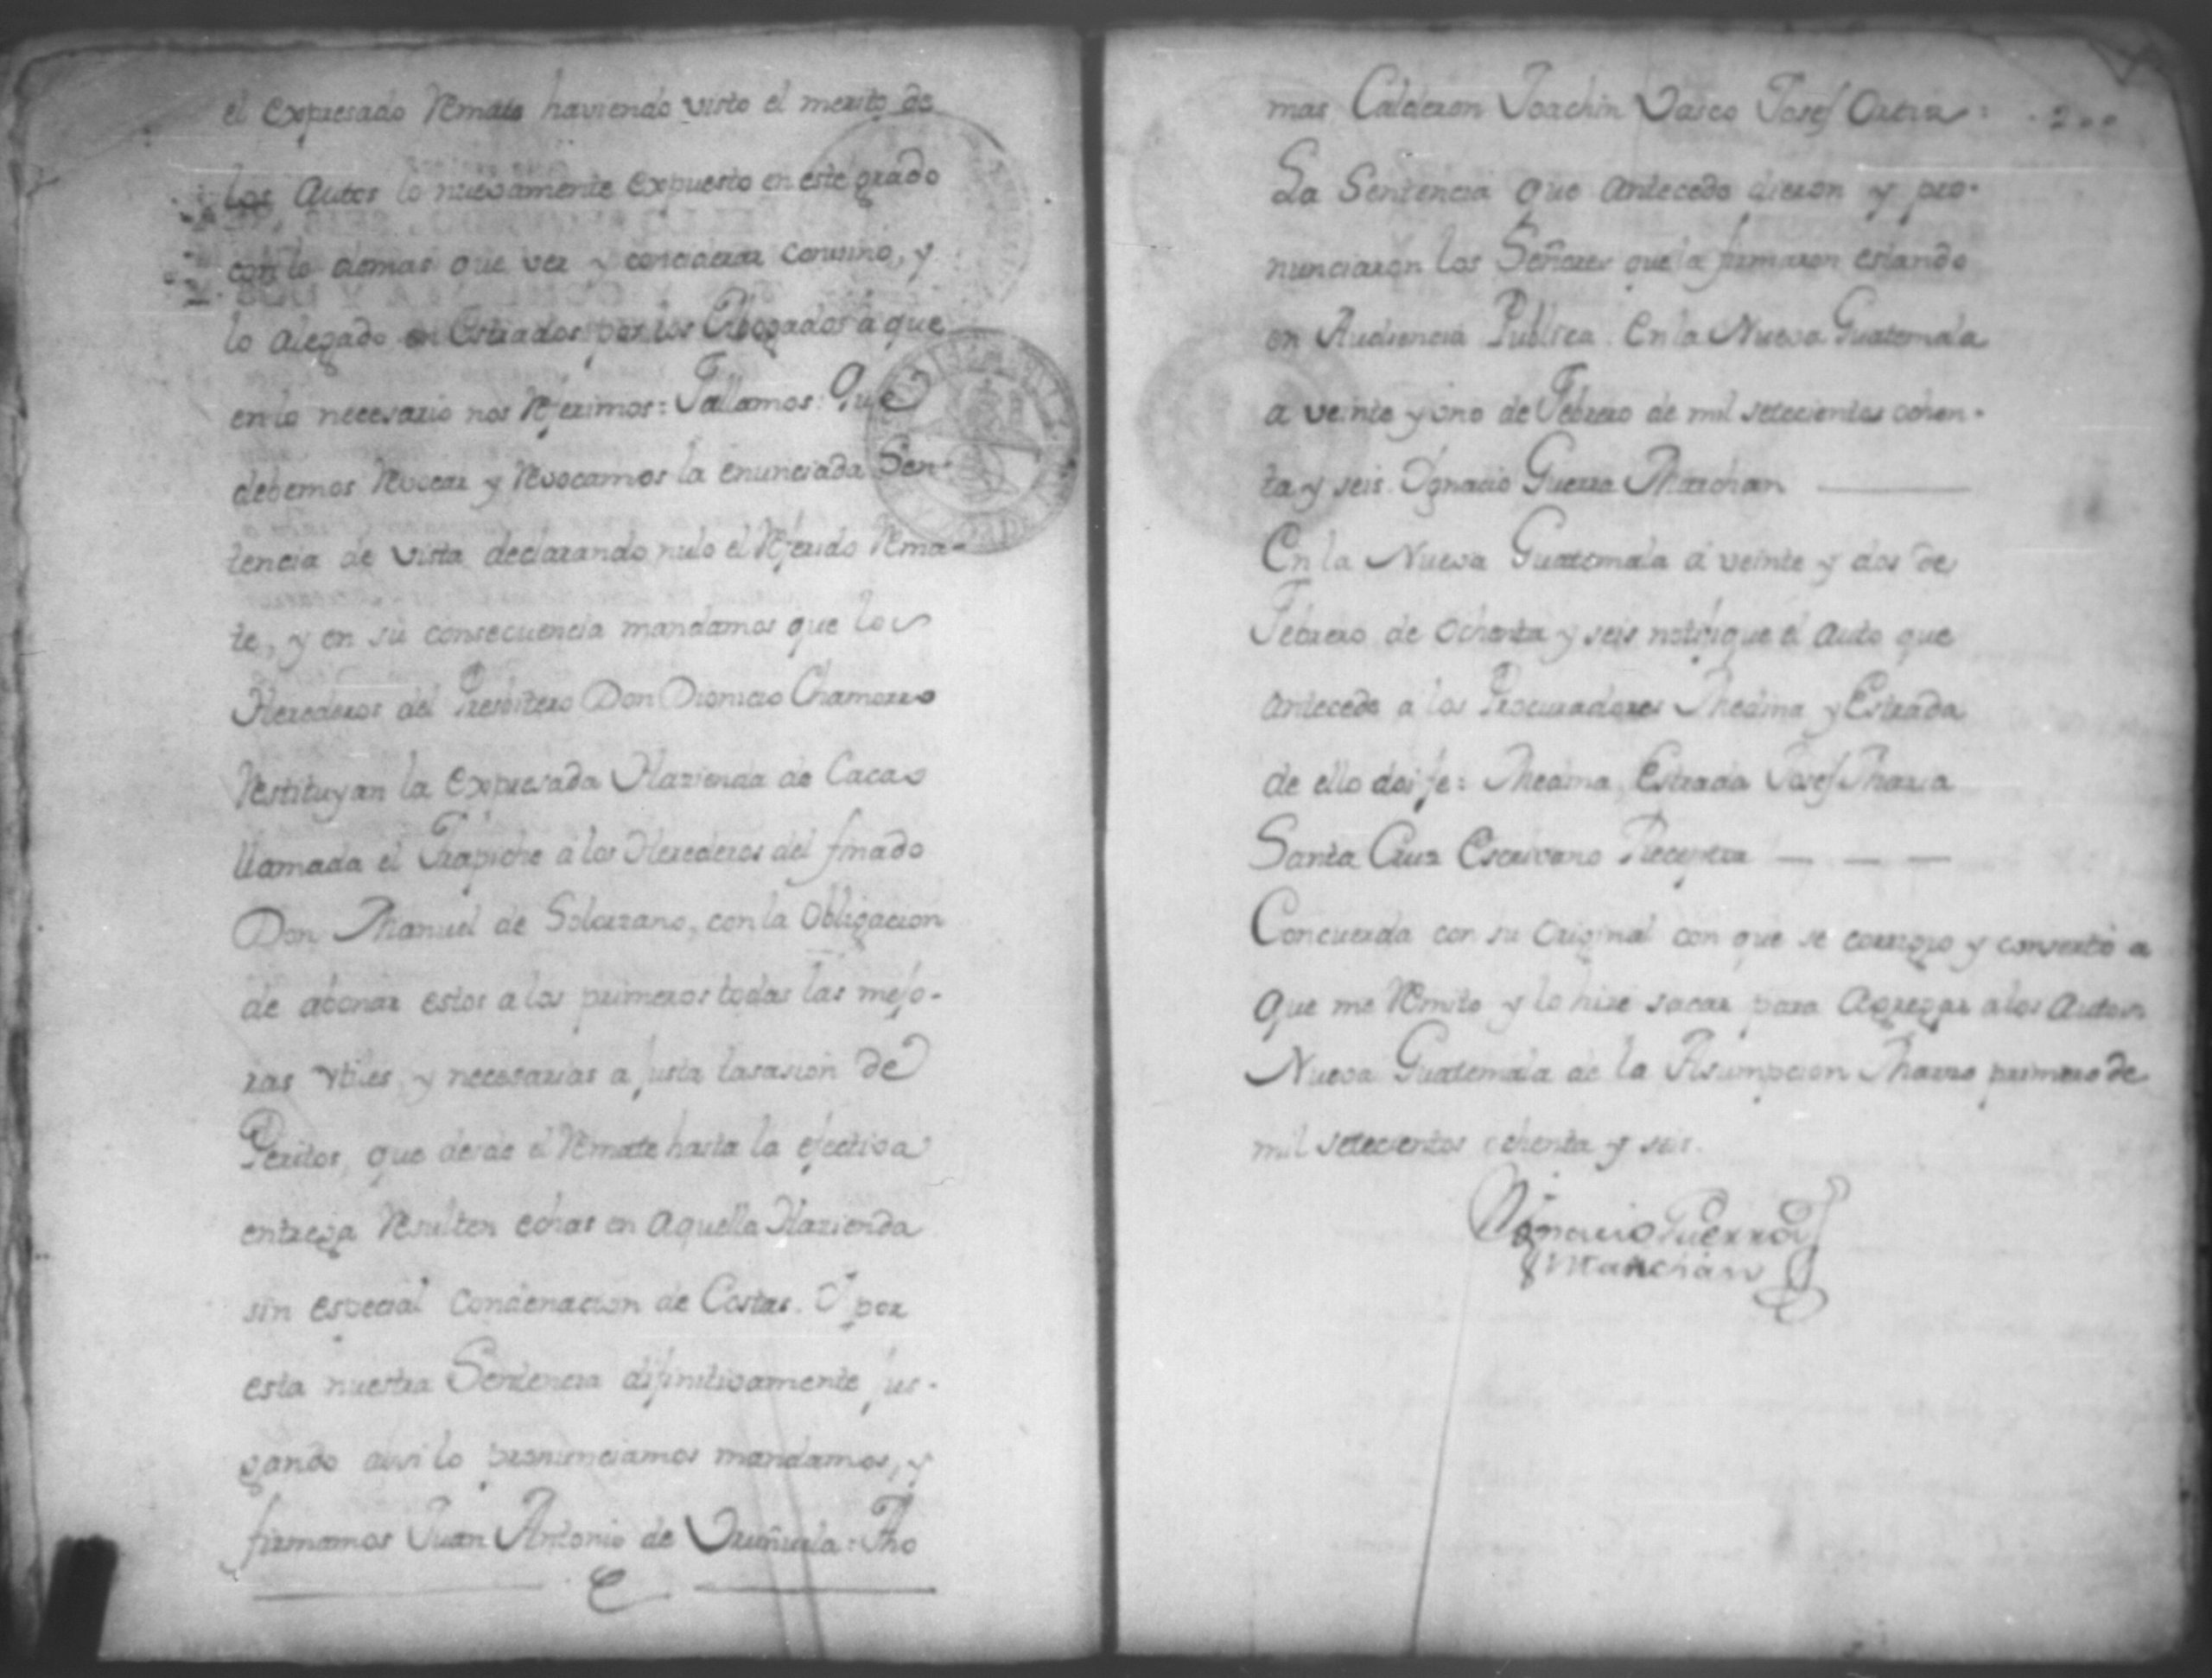 el expresado Remate haviendo visto el merito de
los Autos lo nuevamente expuesto en este grado
con lo demas que ver y conciderar convino, y
lo alegado en Estrados por los Abogados á que
en lo necesario nos Referimos: Fallamos: Que
debemos Revocar y Revocamos la enunciada Sen-
tencia de vista declarando nulo el Referido Rema-
te, y en su consecuencia mandamos que los
Herederos del Presbitero Don Dionicio Chamorro
Restituyan la expresada Hazienda de Cacao
llamada el Trapiche á los Herederos del finado
Don Manuel de Solorzano, con la obligacion
de abonar estos a los primeros todas las mejo-
ras utiles y necesarias a justa tasasion de
Peritos, que desde el Remate hasta la efectiva
entrega Resulten echas en aquella Hazienda
sin especial Condenacion de Costas. Y por
esta nuestra Sentencia difinitivamente jus-
gando assi lo pronunciamos mandamos, y
firmamos Juan Antonio de Uruñuela: Tho
mas Calderon Joachin Vasco Josef Ortiz:
La Sentencia que antecede dieron y pro-
nunciaron los Señores que la firmaron estando
en Audiencia Publica. En la Nueva Guatemala
a veinte y uno de Febrero de mil setecientos ochen-
ta y seis. Ignacio Guerra Marchan
En la Nueva Guatemala á veinte y dos de
Febrero de ochenta y seis notifique el auto que
antecede a los Procuradores Medina y Estrada
de ello doi fe: Medina Estrada Josef Maria
Santa Cruz Escrivano Receptor
Concuerda con su original con que se corrigio y consertó a
que me Remito y lo hise sacar para Agregar a los Autos
Nueva Guatemala de la Asumpcion Marzo primero de
mil setecientos ochenta y seis.
Ignacio Guerra
Marchan